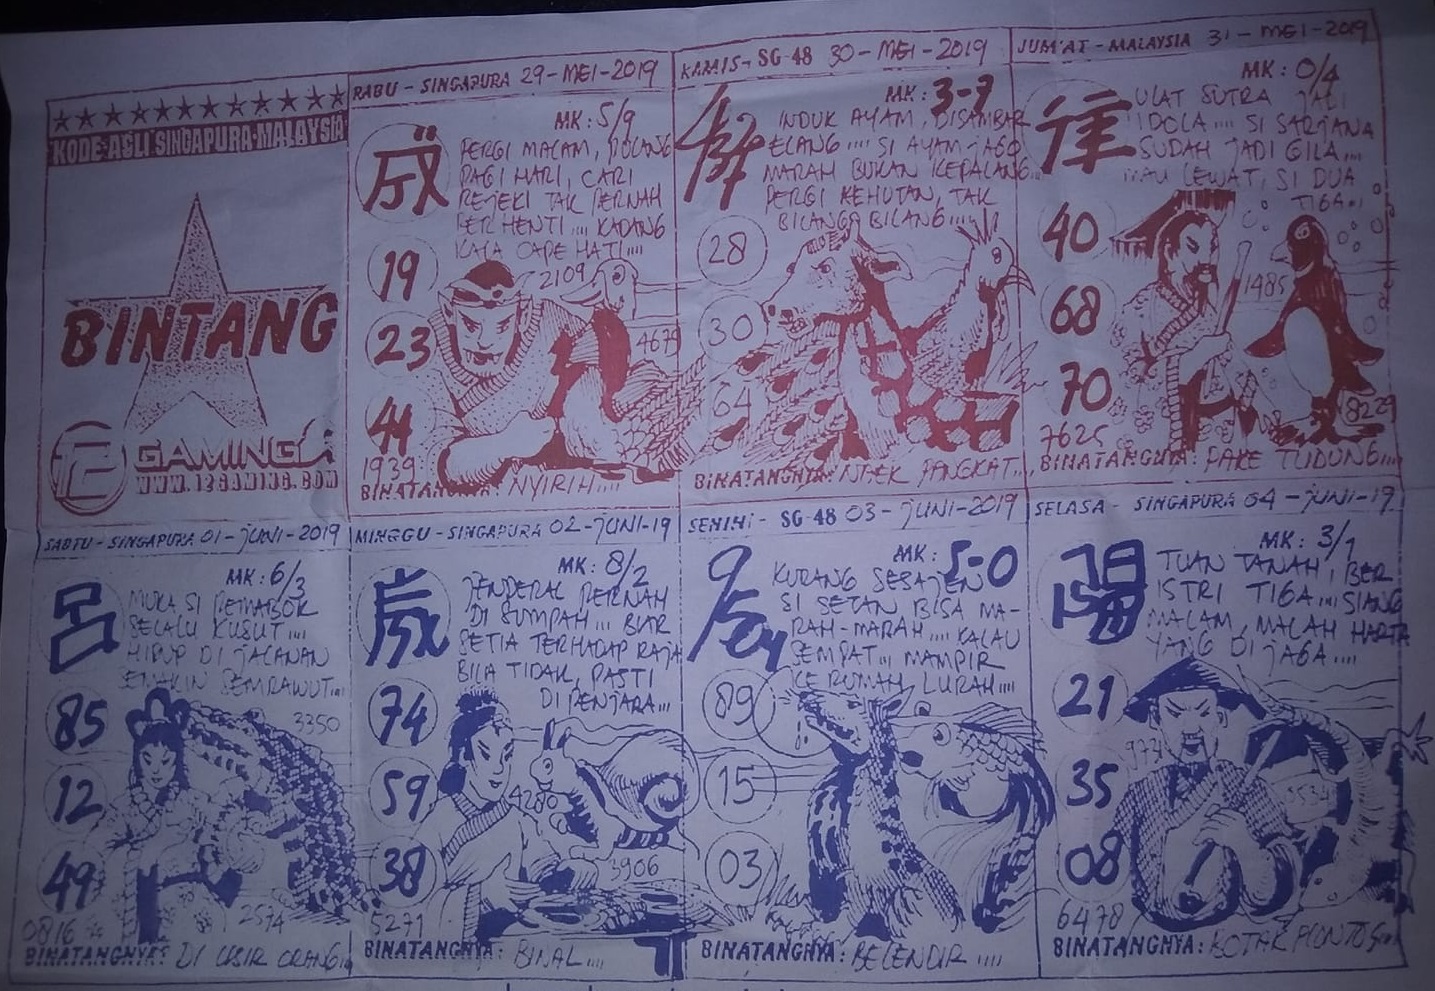 ★★★★★★★★★★★★
KODE ASLI SINGAPURA-MALAYSIA
BINTANG
12
GAMING
WWW.12GAMING.COM
RABU - SINGAPURA 29-MEI-2019
MK: 5/9
PERGI MALAM, PULANG
PAGI HARI, CARI
REJEKI TAK PERNAH
BERHENTI .... KADANG
KALA CAPE HATI....
19
23
44
2109
4679
1939
BINATANGNYA: NYIRIH....
KAMIS - SG-48 30-MEI-2019
MK: 3-7
INDUK AYAM, DISAMBAR
ELANG .... SI AYAM JAGO
MARAH BUKAN KEPALANG...
PERGI KEHUTAN, TAK
BILANG2 BILANG....
28
30
64
BINATANGNYA: NAEK PANGKAT....
JUM'AT - MALAYSIA 31-MEI-2019
MK: 0/4
ULAT SUTRA JADI
IDOLA .... SI SARJANA
SUDAH JADI GILA....
MAU LEWAT, SI DUA
TIGA..
40
68
70
1485
8229
7625
BINATANGNYA: PAKE TUDUNG....
SABTU - SINGAPURA 01-JUNI-2019
MK: 6/3
呂
MUKA SI PEMABOK
SELALU KUSUT....
HIDUP DI JALANAN
SEMAKIN SEMRAWUT....
85
12
49
3350
2574
0816
BINATANGNYA: DI USIR ORANG..
MINGGU - SINGAPURA 02-JUNI-19
MK: 8/2
JENDERAL PERNAH
DI SUMPAH... BIAR
SETIA TERHADAP RAJA
BILA TIDAK, PASTI
DI PENJARA...
74
59
38
4280
3906
5271
BINATANGNYA: BINAL....
SENIN - SG-48 03-JUNI-2019
MK: 5-0
KURANG SESAJEN
SI SETAN BISA MA-
RAH-MARAH .... KALAU
SEMPAT... MAMPIR
KE RUMAH LURAH....
89
15
03
BINATANGNYA: BELENDIR....
SELASA - SINGAPURA 04-JUNI-19
MK: 3/1
陽
TUAN TANAH, BER
ISTRI TIGA.... SIANG
MALAM, MALAH HARTA
YANG DI JAGA....
21
35
08
5534
6478
BINATANGNYA: BOTAK PLONTOS..